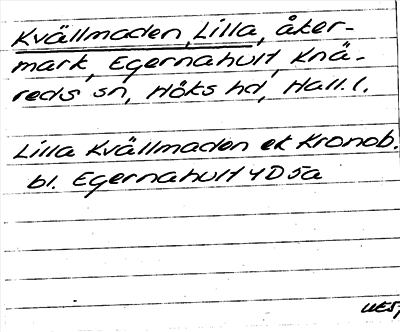 Kvällmaden, Lilla, åker-
mark, Egernahult, Knä-
reds sn, Höks hd, Hall. l.
Lilla Kvällmaden ek Kronob.
bl. Egernahult 4D5a